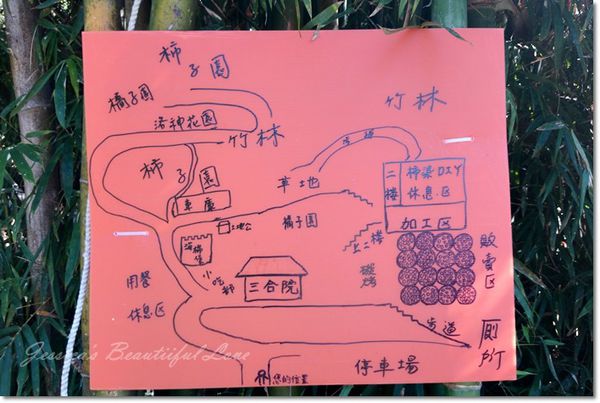 柿子園
橘子園
洛神花園
竹林
竹林
步道
柿子園
車庫
草地
二樓
柿染DIY
休息區
加工區
土地公
橘子園
上二樓
販賣區
小吃部
三合院
用餐
休息區
步道
廁所
停車場
您的位置
Jessica's Beautiiful Love